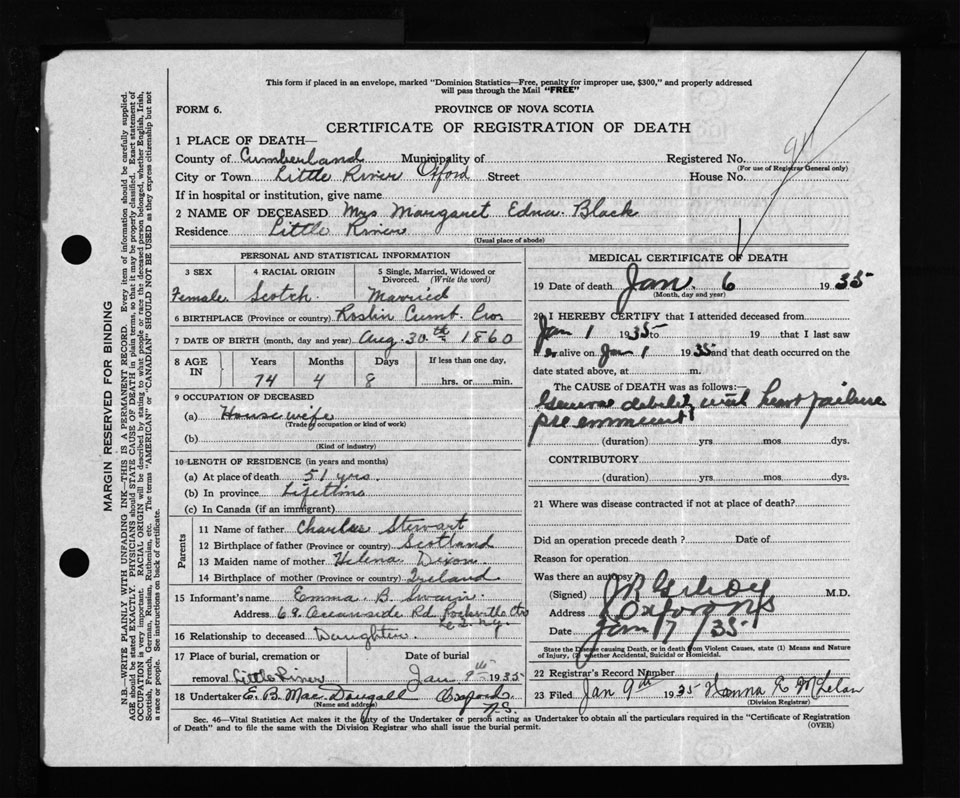 This form if placed in an envelope, marked "Dominion Statistics—Free, penalty for improper use, $300," and properly addressed
will pass through the Mail "FREE"
FORM 6. PROVINCE OF NOVA SCOTIA
CERTIFICATE OF REGISTRATION OF DEATH
1 PLACE OF DEATH—
County of Cumberland Municipality of Registered No. 94
(For use of Registrar General only)
City or Town Little River Oxford Street House No.
If in hospital or institution, give name
2 NAME OF DECEASED Mrs Margaret Edna Black
Residence Little River
(Usual place of abode)
PERSONAL AND STATISTICAL INFORMATION
3 SEX 4 RACIAL ORIGIN 5 Single, Married, Widowed or
Divorced. (Write the word)
Female Scotch Married
6 BIRTHPLACE (Province or country) Roslin Cumb. Co
7 DATE OF BIRTH (month, day and year) Aug. 30th 1860
8 AGE IN Years Months Days If less than one day,
74 4 8 hrs. or min.
9 OCCUPATION OF DECEASED
(a) House wife
(Trade, occupation or kind of work)
(b)
(Kind of industry)
10 LENGTH OF RESIDENCE (in years and months)
(a) At place of death 51 yrs.
(b) In province Lifetime
(c) In Canada (if an immigrant)
Parents
11 Name of father Charles Stewart
12 Birthplace of father (Province or country) Scotland
13 Maiden name of mother Helena Dixon
14 Birthplace of mother (Province or country) Ireland
15 Informant's name Emma B. Swain
Address 69 Oceanside Rd, Rockville Ctr
N.Y.
16 Relationship to deceased Daughter
17 Place of burial, cremation or Date of burial
removal Little River Jan 9th 1935
18 Undertaker E. B. MacDougall Oxford
N.S.
(Name and address)
MEDICAL CERTIFICATE OF DEATH
19 Date of death Jan. 6 1935
(Month, day and year)
20 I HEREBY CERTIFY that I attended deceased from
Jan 1 1935 to 19 that I last saw
h er alive on Jan 1 1935 and that death occurred on the
date stated above, at m.
The CAUSE of DEATH was as follows:—
General debility with heart failure
pre emminent
(duration) yrs. mos. dys.
CONTRIBUTORY
(duration) yrs. mos. dys.
21 Where was disease contracted if not at place of death?
Did an operation precede death? Date of
Reason for operation
Was there an autopsy?
(Signed) M.D.
Address Oxford NS
Date Jan 7/35
State the Disease causing Death, or in death from Violent Causes, state (1) Means and Nature
of Injury, (2) whether Accidental, Suicidal or Homicidal.
22 Registrar's Record Number
23 Filed Jan 9th 1935 Hanna E McLelan
(Division Registrar)
Sec. 46—Vital Statistics Act makes it the duty of the Undertaker or person acting as Undertaker to obtain all the particulars required in the "Certificate of Registration
of Death" and to file the same with the Division Registrar who shall issue the burial permit. (OVER)
MARGIN RESERVED FOR BINDING
N.B.—WRITE PLAINLY WITH UNFADING INK—THIS IS A PERMANENT RECORD. Every item of information should be carefully supplied.
AGE should be stated EXACTLY. PHYSICIANS should STATE CAUSE OF DEATH in plain terms, so that it may be properly classified. Exact statement of
OCCUPATION is very important. RACIAL ORIGIN will be described by stating to what people or race the deceased person belonged, whether English, Irish,
Scottish, French, German, Russian, Ruthenian, etc. The terms "AMERICAN" or "CANADIAN" SHOULD NOT BE USED as they express citizenship but not
a race or people. See instructions on back of certificate.